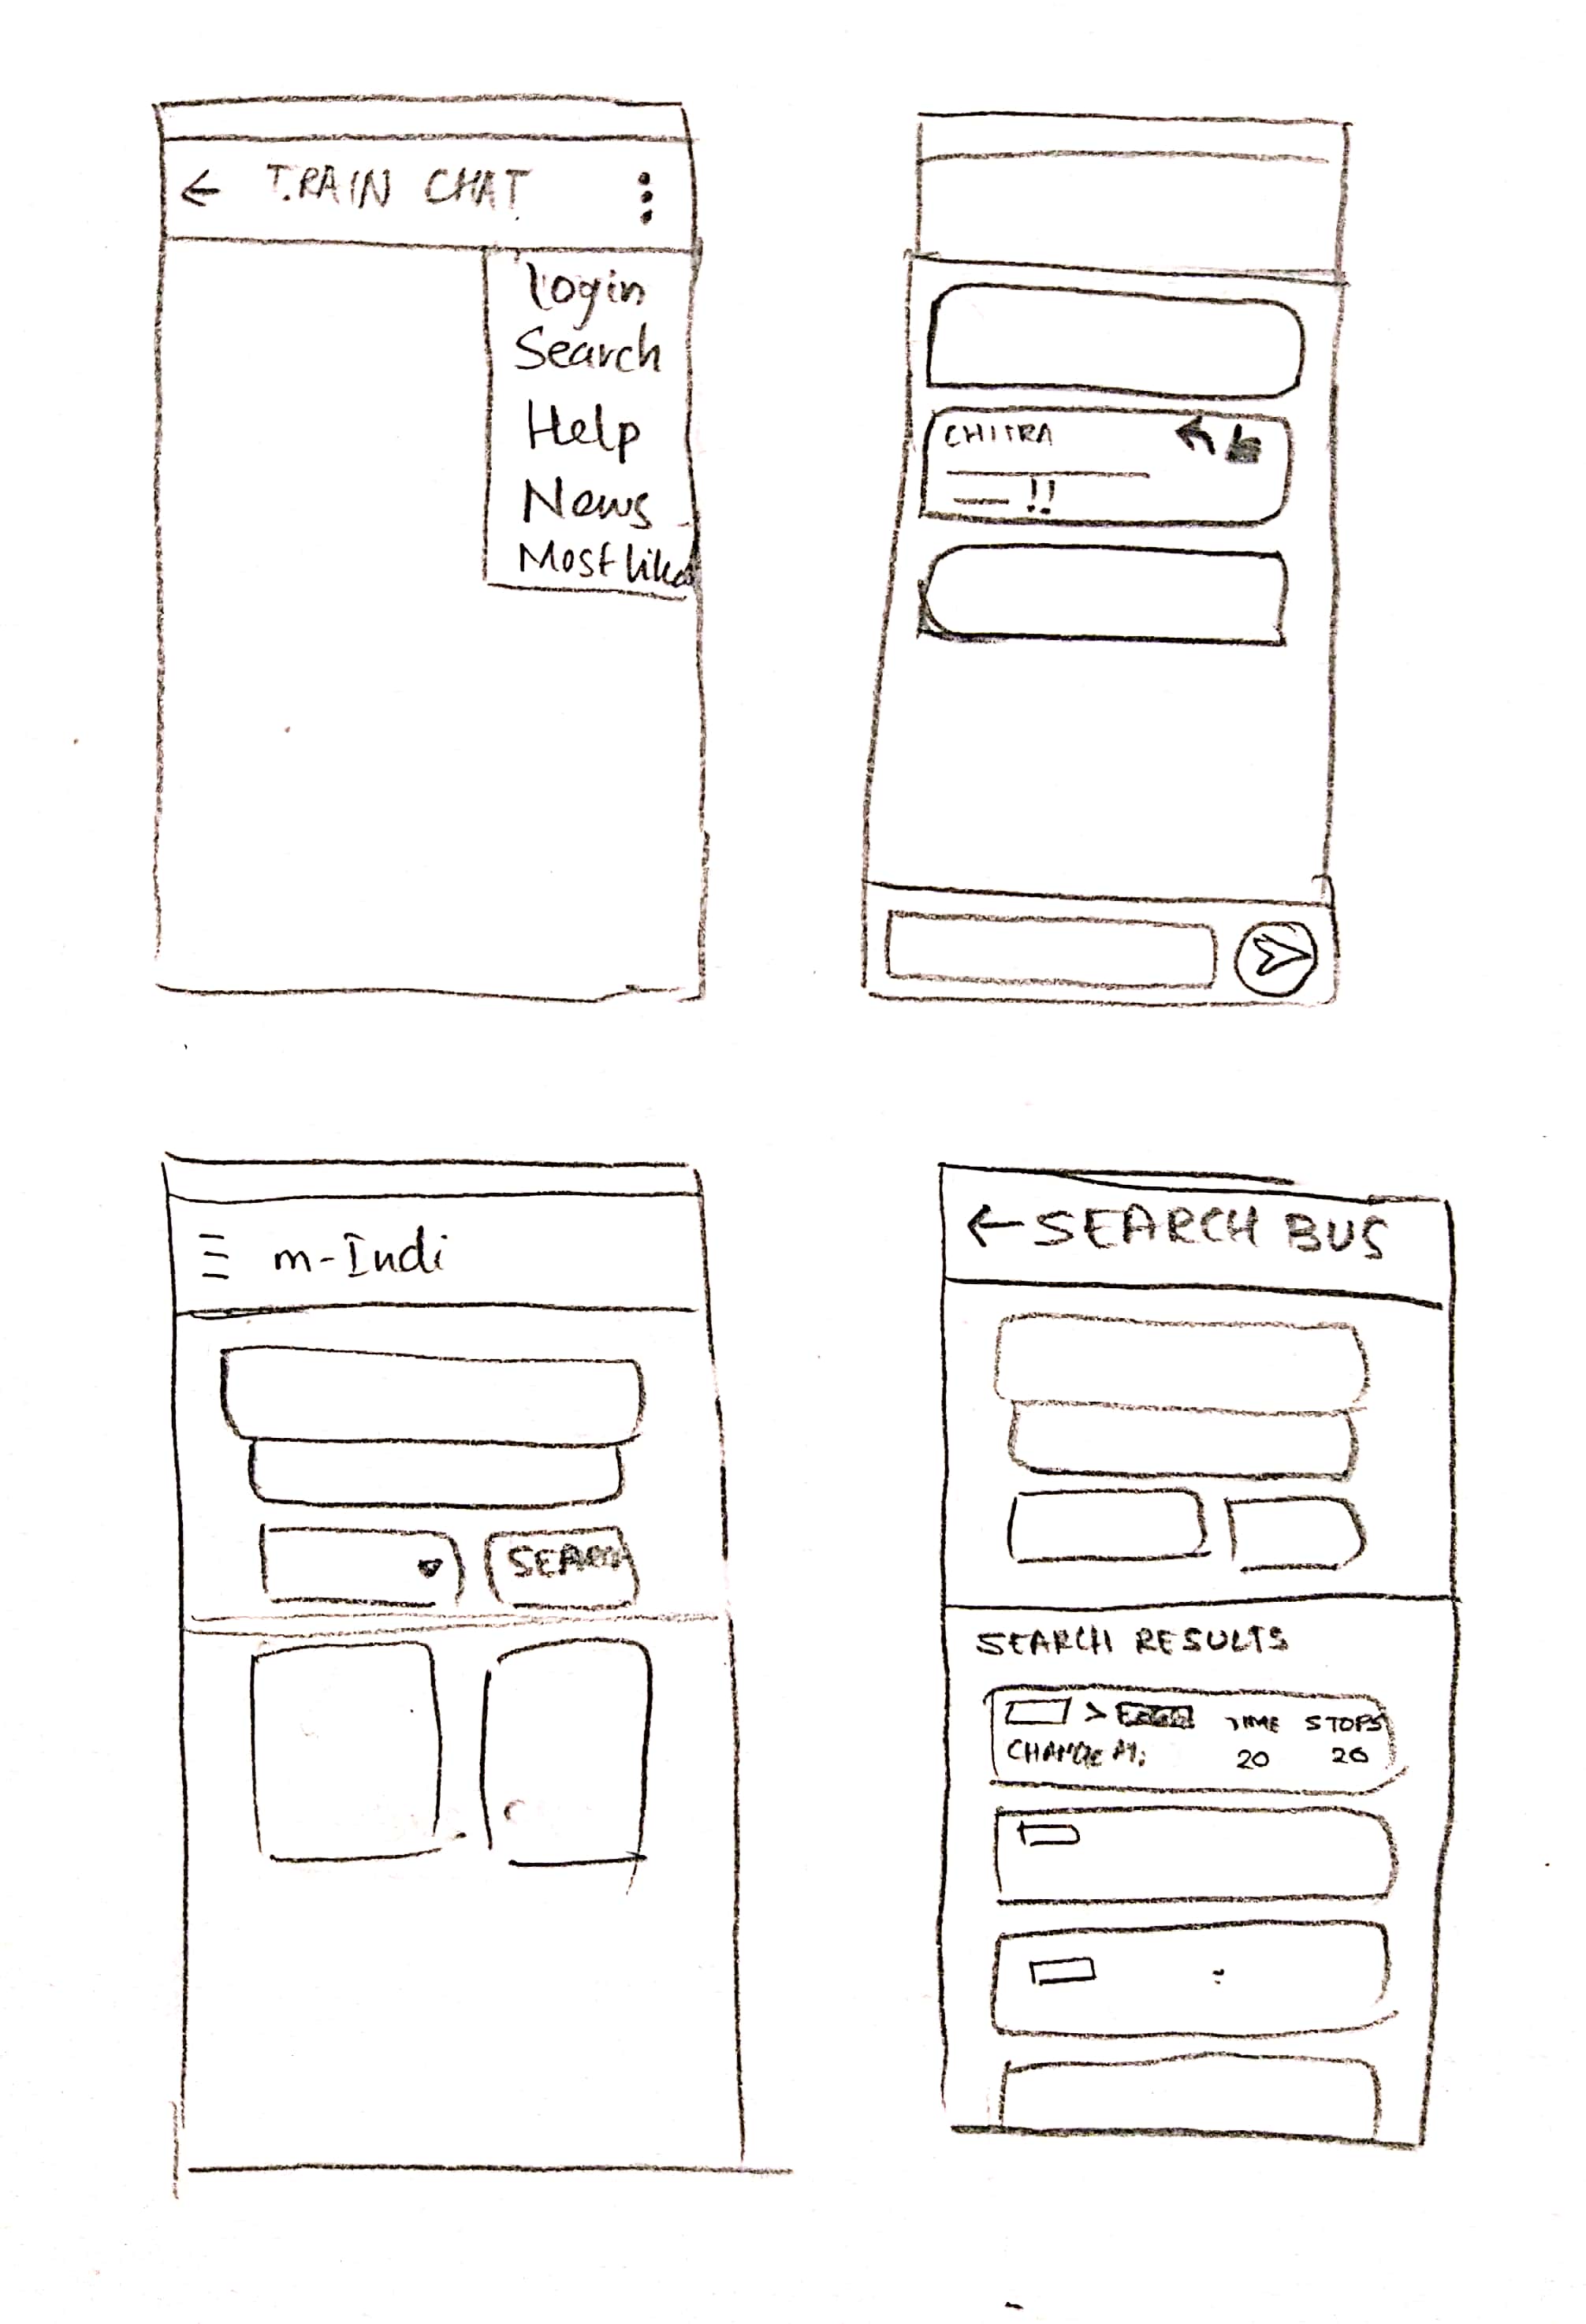 ← TRAIN CHAT
Login
Search
Help
News
Most liked
CHITRA
!!
m-Indi
SEARCH
← SEARCH BUS
SEARCH RESULTS
> TIME STOPS
CHANGE AT: 20 26